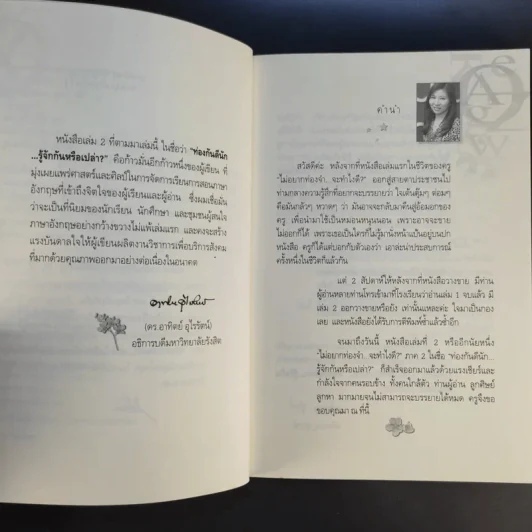 หนังสือเล่ม 2 ที่ตามมาเล่มนี้ ในชื่อว่า "ท่องกันดีนัก
...รู้จักกันหรือเปล่า?" คือก้าวมันอีกก้าวหนึ่งของผู้เขียน ที่
มุ่งเผยแพร่ศาสตร์และศิลป์ในการจัดการเรียนการสอนภาษา
อังกฤษที่เข้าถึงจิตใจของผู้เรียนและผู้อ่าน ซึ่งผมเชื่อมั่น
ว่าจะเป็นที่นิยมของนักเรียน นักศึกษา และชุมชนผู้สนใจ
ภาษาอังกฤษอย่างกว้างขวางไม่แพ้เล่มแรก และคงจะสร้าง
แรงบันดาลใจให้ผู้เขียนผลิตงานวิชาการเพื่อบริการสังคม
ที่มากด้วยคุณภาพออกมาอย่างต่อเนื่องในอนาคต
(ดร.อาทิตย์ อุไรรัตน์)
อธิการบดีมหาวิทยาลัยรังสิต
คำนำ
สวัสดีค่ะ หลังจากที่หนังสือเล่มแรกในชีวิตของครู
"ไม่อยากท่องจำ.. จะทำไงดี?" ออกสู่สายตาประชาชนไป
ท่ามกลางความรู้สึกที่อยากจะบรรยายว่า ใจเต้นตุ้มๆ ต่อมๆ
คือมันกลัวๆ หวาดๆ ว่า มันอาจจะกลับมาคืนสู่อ้อมอกของ
ครู เพื่อนำมาใช้เป็นหมอนหนุนนอน เพราะอาจจะขาย
ไม่ออกก็ได้ เพราะเธอเป็นใครก็ไม่รู้มานั่งหน้าเป็นอยู่บนปก
หนังสือ ครูก็ได้แต่บอกกับตัวเองว่า เอาล่ะน่าประสบการณ์
ครั้งหนึ่งในชีวิตก็แล้วกัน
แต่ 2 สัปดาห์ให้หลังจากที่หนังสือวางขาย มีท่าน
ผู้อ่านหลายท่านโทรเข้ามาที่โรงเรียนว่าอ่านเล่ม 1 จบแล้ว มี
เล่ม 2 ออกวางขายหรือยัง เท่านั้นแหละค่ะ หัวใจมาเป็นกอง
เลย และหนังสือยังได้รับการตีพิมพ์ซ้ำแล้วซ้ำอีก
จนมาถึงวันนี้ หนังสือเล่มที่ 2 หรืออีกนัยหนึ่ง
"ไม่อยากท่องจำ.. จะทำไงดี?" ภาค 2 ในชื่อ "ท่องกันดีนัก...
รู้จักกันหรือเปล่า?" ก็สำเร็จออกมาแล้วด้วยแรงเชียร์และ
กำลังใจจากคนรอบข้าง ทั้งคนใกล้ตัว ท่านผู้อ่าน ลูกศิษย์
ลูกหา มากมายจนไม่สามารถจะบรรยายได้หมด ครูจึงขอ
ขอบคุณมา ณ ที่นี้